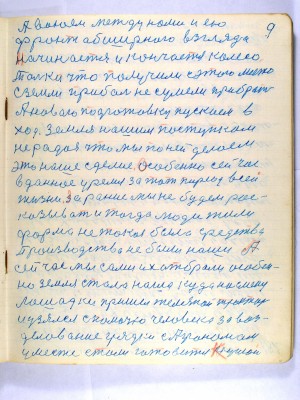 9
А воюем между нами и ею
фронт обширного взгляда
Начинается и кончается колесо
Только что получили с этого мето
с земли прибол не сумели прибрать
А новаго подготовку пускаем в
ход. Земля нашим поступкам
не рада что мы по ней делаем
это наше сделие. Особенно сейчас
в данное время за этот период всей
жизни. За раньше мы не будем рас-
казывать и тогда люди жили
форма не такая была средства
производства не были наши А
сейчас мы сами их отбрали особен-
но земля стала наша куда на смену
лошадки пришли железная трактор
и взялся с помочью человека за воз-
делование грядки с Агрономом
уместе стали готовится к